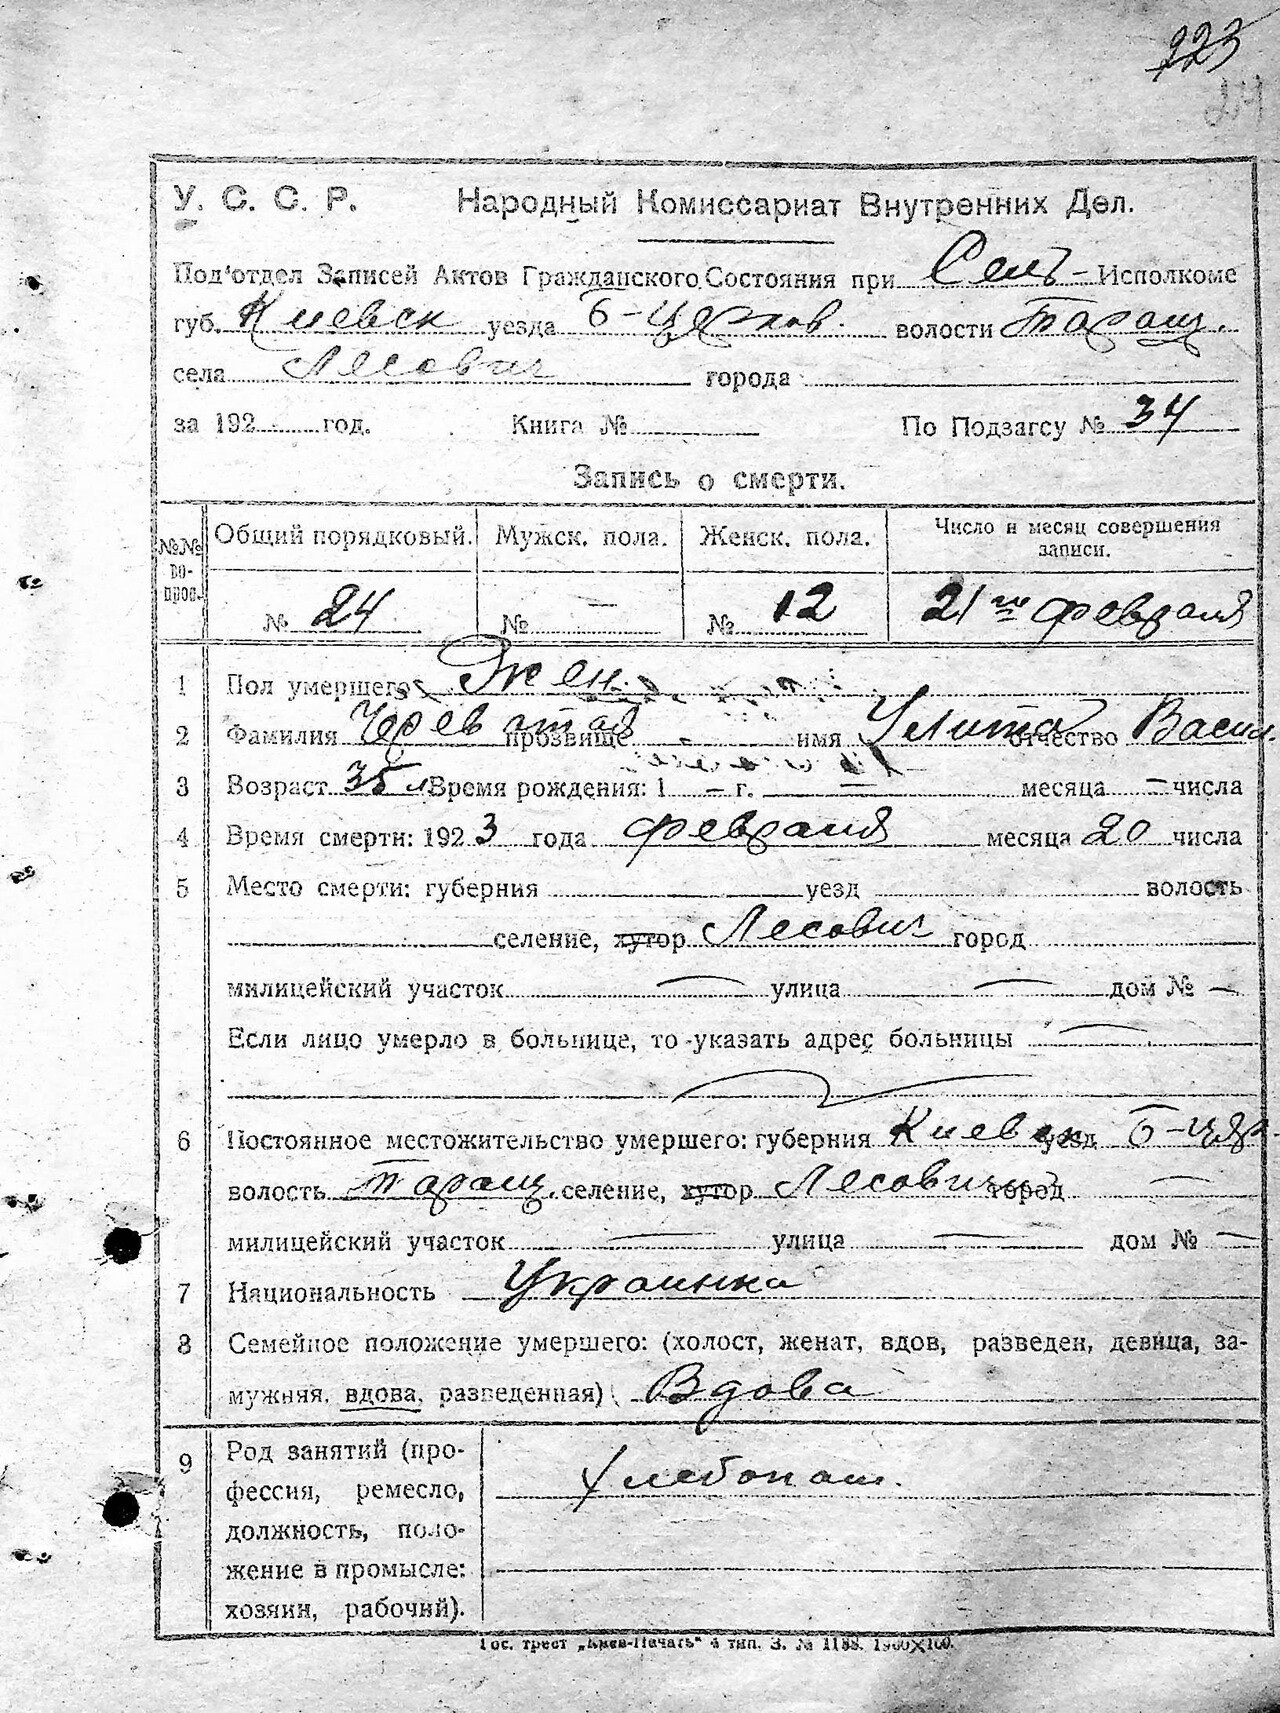 223
24
У. С. С. Р. Народный Комиссариат Внутренних Дел.
Под'отдел Записей Актов Гражданского Состояния при Сель- Исполкоме
губ. Киевск уезда б-церков. волости Таращ.
села Лесович города
за 192 год. Книга № По Подзагсу № 34
Запись о смерти.
№№ вопрос. Общий порядковый. Мужск. пола. Женск. пола. Число и месяц совершения записи.
№ 24 № — № 12 21го февраля
1 Пол умершего Жен.
2 Фамилия прозвище — имя Улита отчество Васил.
3 Возраст 35 л Время рождения: 1 – г. — месяца – числа
4 Время смерти: 1923 года февраля месяца 20 числа
5 Место смерти: губерния уезд волость
селение, хутор Лесович город
милицейский участок — улица — дом № —
Если лицо умерло в больнице, то указать адрес больницы —
6 Постоянное местожительство умершего: губерния Киевск уезд б-церк.
волость Таращ. селение, хутор Лесовичи город —
милицейский участок — улица — дом № —
7 Национальность Украинка
8 Семейное положение умершего: (холост, женат, вдов, разведен, девица, за-
мужняя, вдова, разведенная) Вдова
9 Род занятий (про-
фессия, ремесло,
должность, поло-
жение в промысле:
хозяин, рабочий).
Хлебопаш.
Гос. трест „Киев-Печать" 4 тип. З. № 1188. 1900×100.